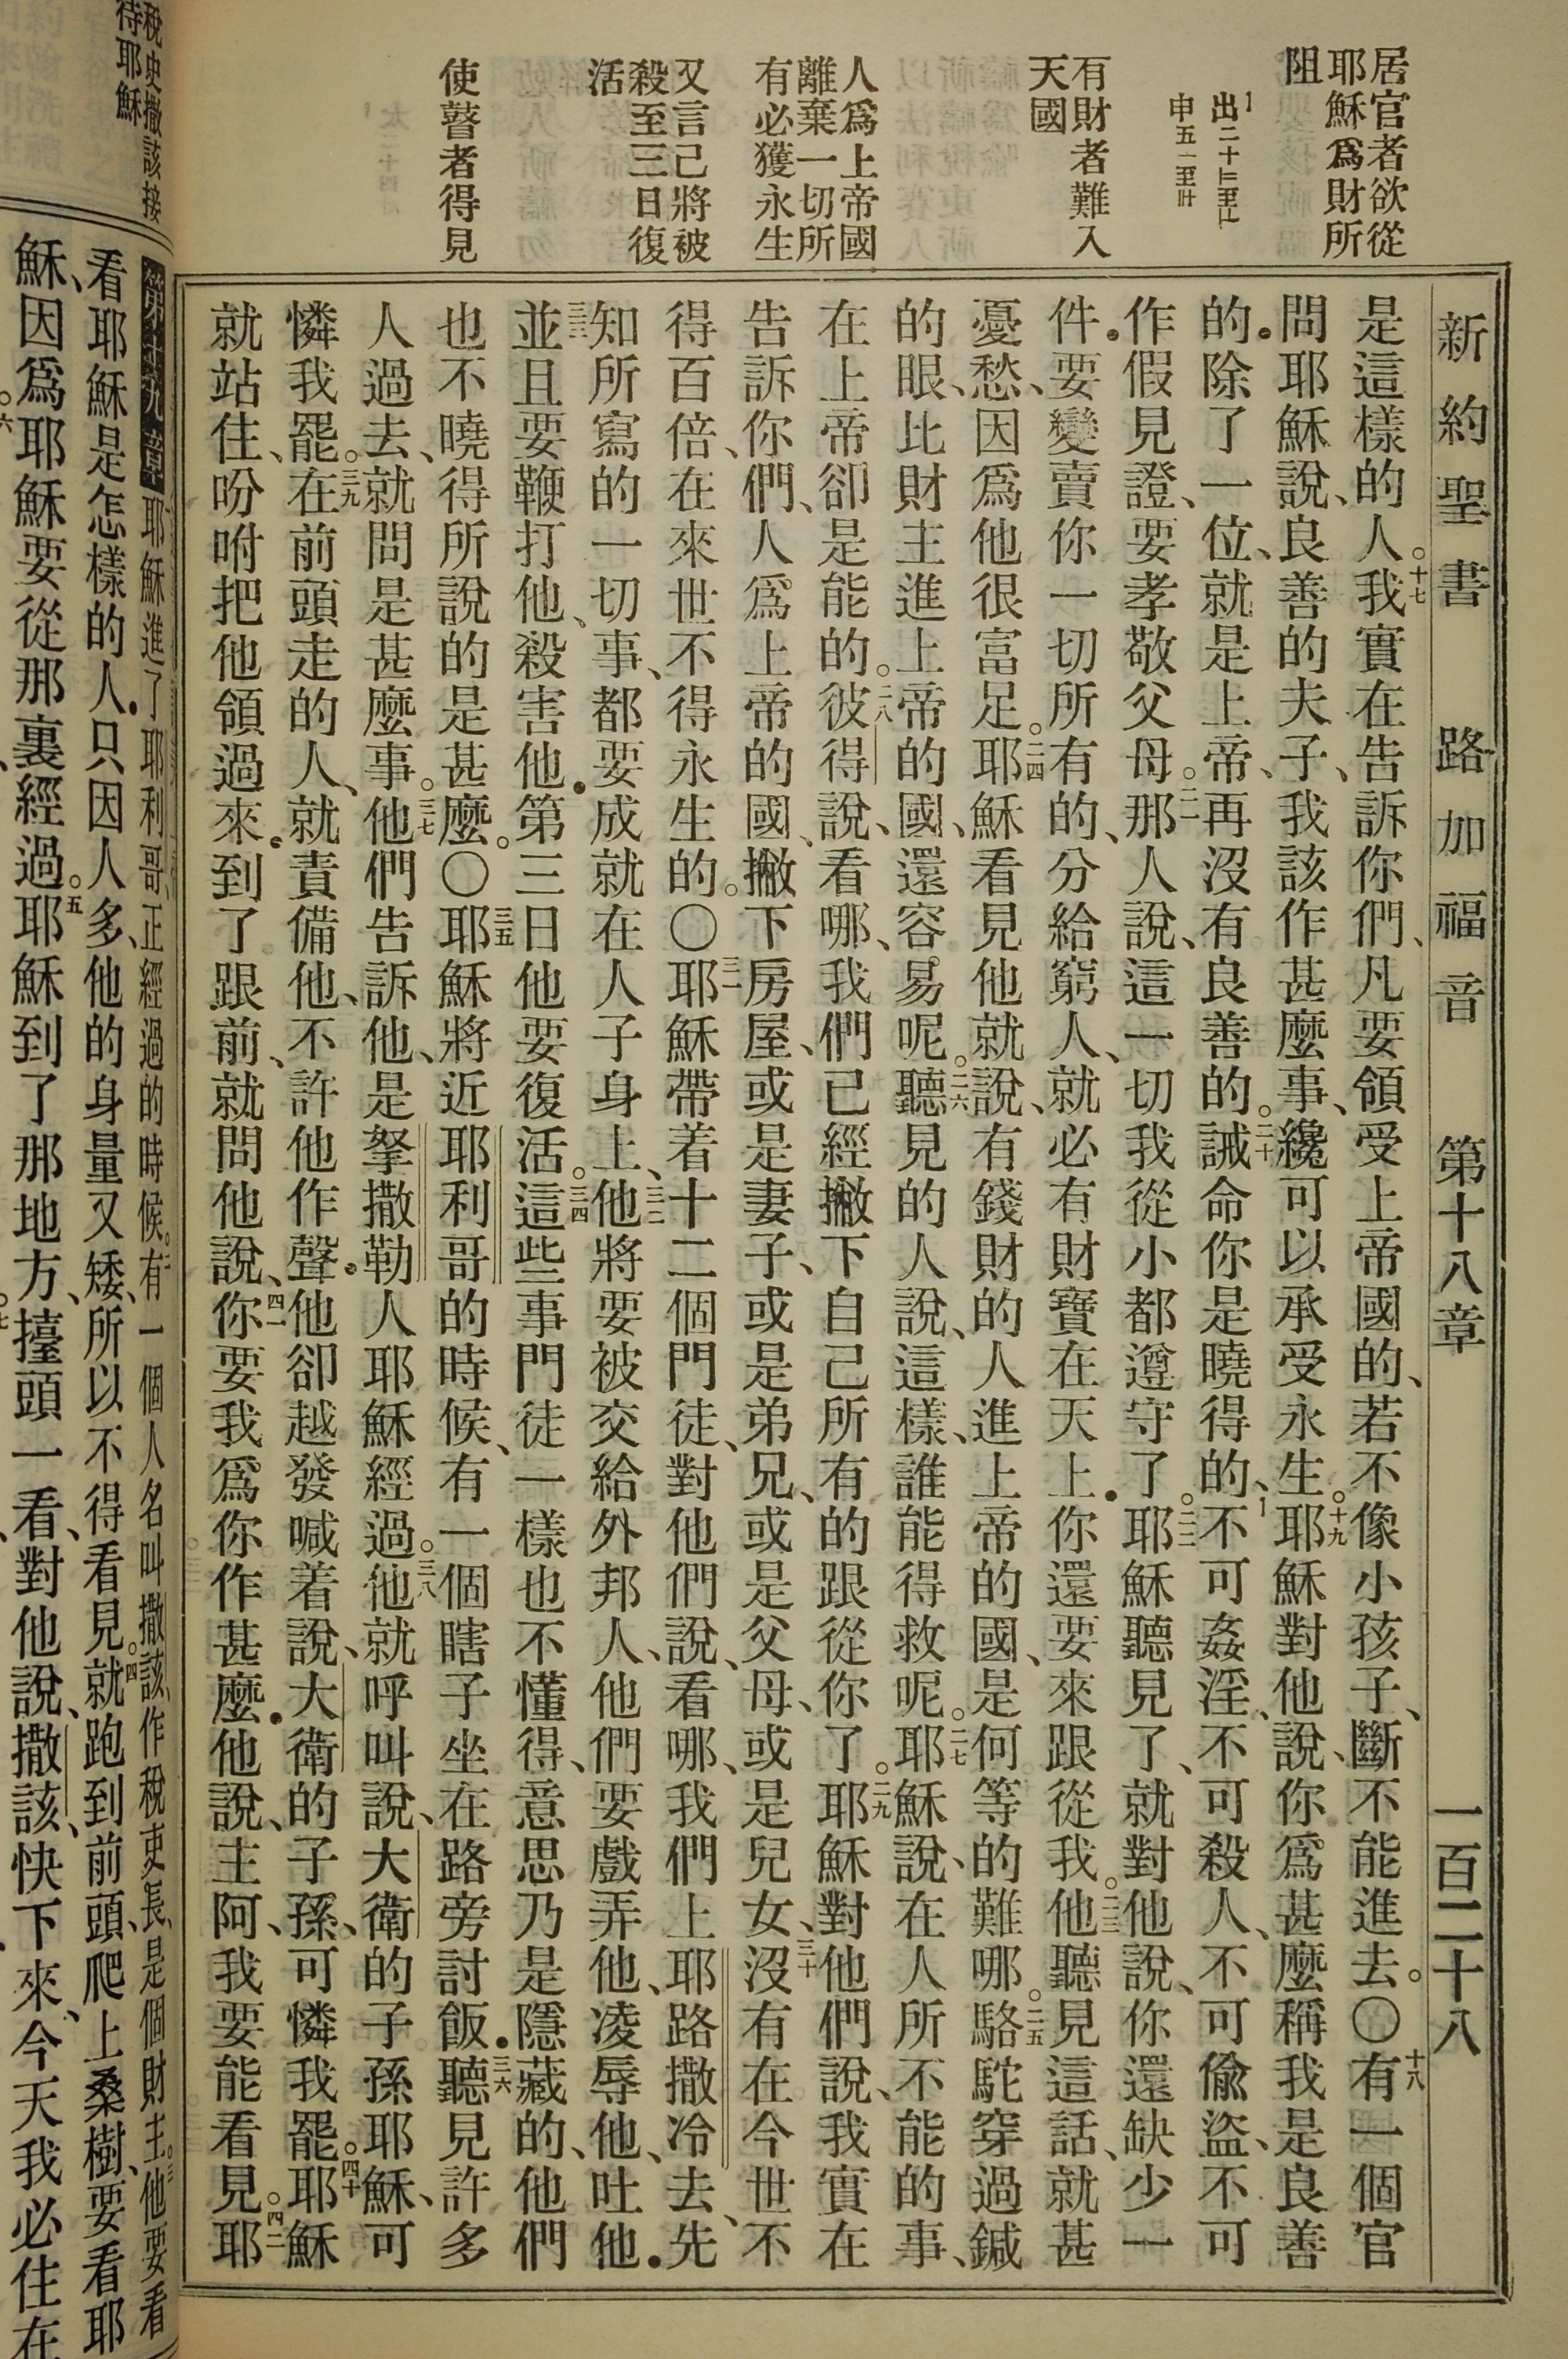 新約聖書　路加福音　第十八章　一百二十八
居官者欲從
耶穌爲財所
阻
出二十
申五
有財者難入
天國
人爲上帝國
離棄一切所
有必獲永生
又言己將被
殺至三日復
活
使瞽者得見
是這樣的人。十七我實在告訴你們、凡要領受上帝國的、若不像小孩子、斷不能進去。〇十八有一個官
問耶穌說、良善的夫子、我該作甚麼事、纔可以承受永生。十九耶穌對他說、你爲甚麼稱我是良善
的．除了一位、就是上帝、再沒有良善的。二十誡命你是曉得的、不可姦淫、不可殺人、不可偸盜、不可
作假見證、要孝敬父母。二一那人說、這一切我從小都遵守了。二二耶穌聽見了、就對他說、你還缺少一
件．要變賣你一切所有的、分給窮人、就必有財寶在天上．你還要來跟從我。二三他聽見這話、就甚
憂愁、因爲他很富足。二四耶穌看見他就說、有錢財的人進上帝的國、是何等的難哪。二五駱駝穿過鍼
的眼、比財主進上帝的國、還容易呢。二六聽見的人說、這樣、誰能得救呢。二七耶穌說、在人所不能的事、
在上帝卻是能的。二八彼得說、看哪、我們已經撇下自己所有的跟從你了。二九耶穌對他們說、我實在
告訴你們、人爲上帝的國、撇下房屋、或是妻子、或是弟兄、或是父母、或是兒女、三十沒有在今世不
得百倍、在來世不得永生的。〇三一耶穌帶着十二個門徒、對他們說、看哪、我們上耶路撒冷去、先
知所寫的一切事、都要成就在人子身上、三二他將要被交給外邦人、他們要戲弄他、凌辱他、吐他．
三三並且要鞭打他、殺害他．第三日他要復活。三四這些事門徒一樣也不懂得、意思乃是隱藏的、他們
也不曉得所說的是甚麼。〇三五耶穌將近耶利哥的時候、有一個瞎子坐在路旁討飯．三六聽見許多
人過去、就問是甚麼事。三七他們告訴他、是拏撒勒人耶穌經過。三八他就呼叫說、大衛的子孫耶穌、可
憐我罷。三九在前頭走的人、就責備他、不許他作聲．他卻越發喊着說、大衛的子孫、可憐我罷。四十耶穌
就站住、吩咐把他領過來．到了跟前、就問他說、四一你要我爲你作甚麼．他說、主阿、我要能看見。四二耶
稅吏撒該接
待耶穌
第十九章耶穌進了耶利哥、正經過的時候。二有一個人名叫撒該、作稅吏長、是個財主。三他要看
看耶穌是怎樣的人．只因人多、他的身量又矮、所以不得看見。四就跑到前頭、爬上桑樹、要看耶
穌、因爲耶穌要從那裏經過。五耶穌到了那地方、擡頭一看、對他說、撒該、快下來、今天我必住在